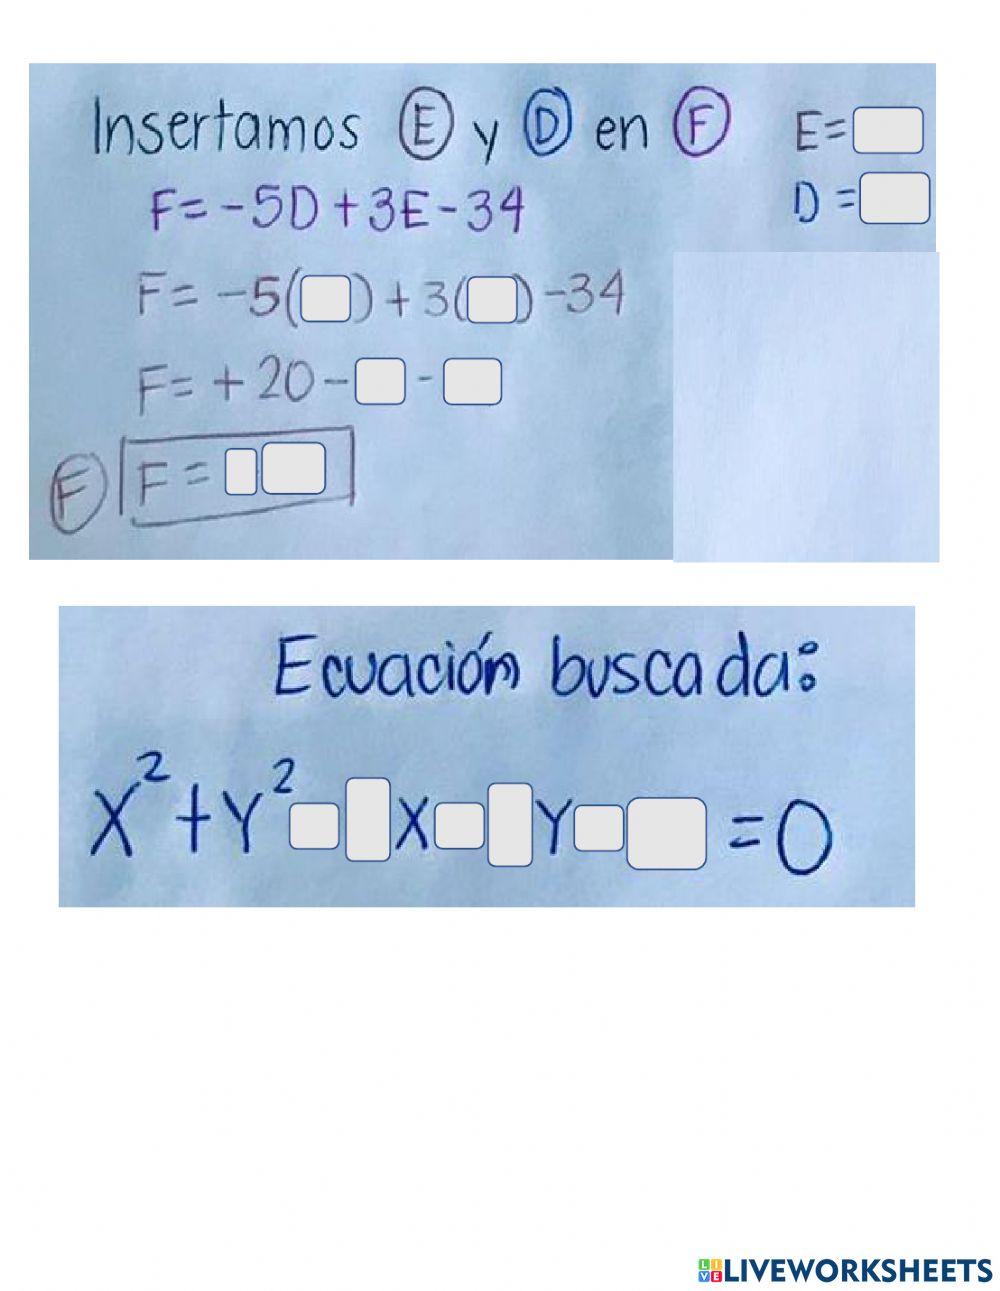 Insertamos E y D en F E=
F= -5D + 3E - 34 D =
F= -5( ) + 3( ) -34
F= +20 - -
F F =
Ecuación buscada:
X²+Y² X Y =0
LIVE LIVEWORKSHEETS